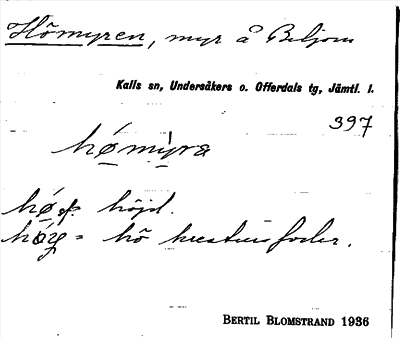 Hömyren, myr å Beljom
Kalls sn, Undersåkers o. Offerdals tg, Jämtl. l.
397
hømyra
hø f. höjd.
= hö kreatursfoder.
BERTIL BLOMSTRAND 1936